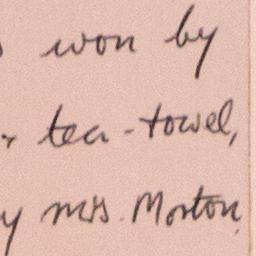 won by
tea-towel,
Mrs. Morton.